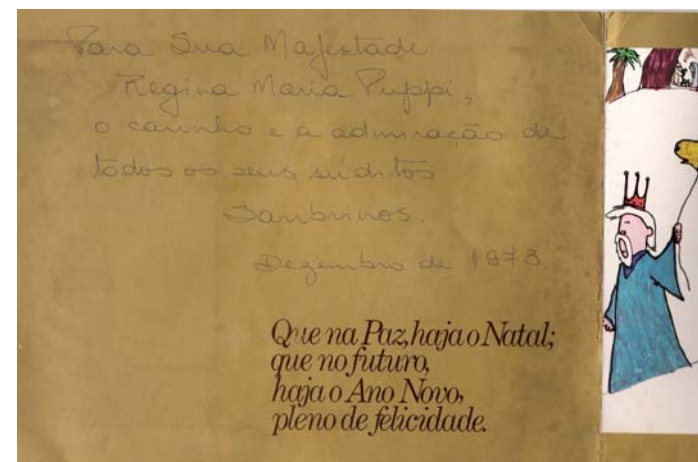 Para Sua Majestade
Regina Maria Puppi,
o carinho e a admiração de
todos os seus súditos
Sambrinos.
Dezembro de 1973
Que na Paz, haja o Natal;
que no futuro,
haja o Ano Novo,
pleno de felicidade.